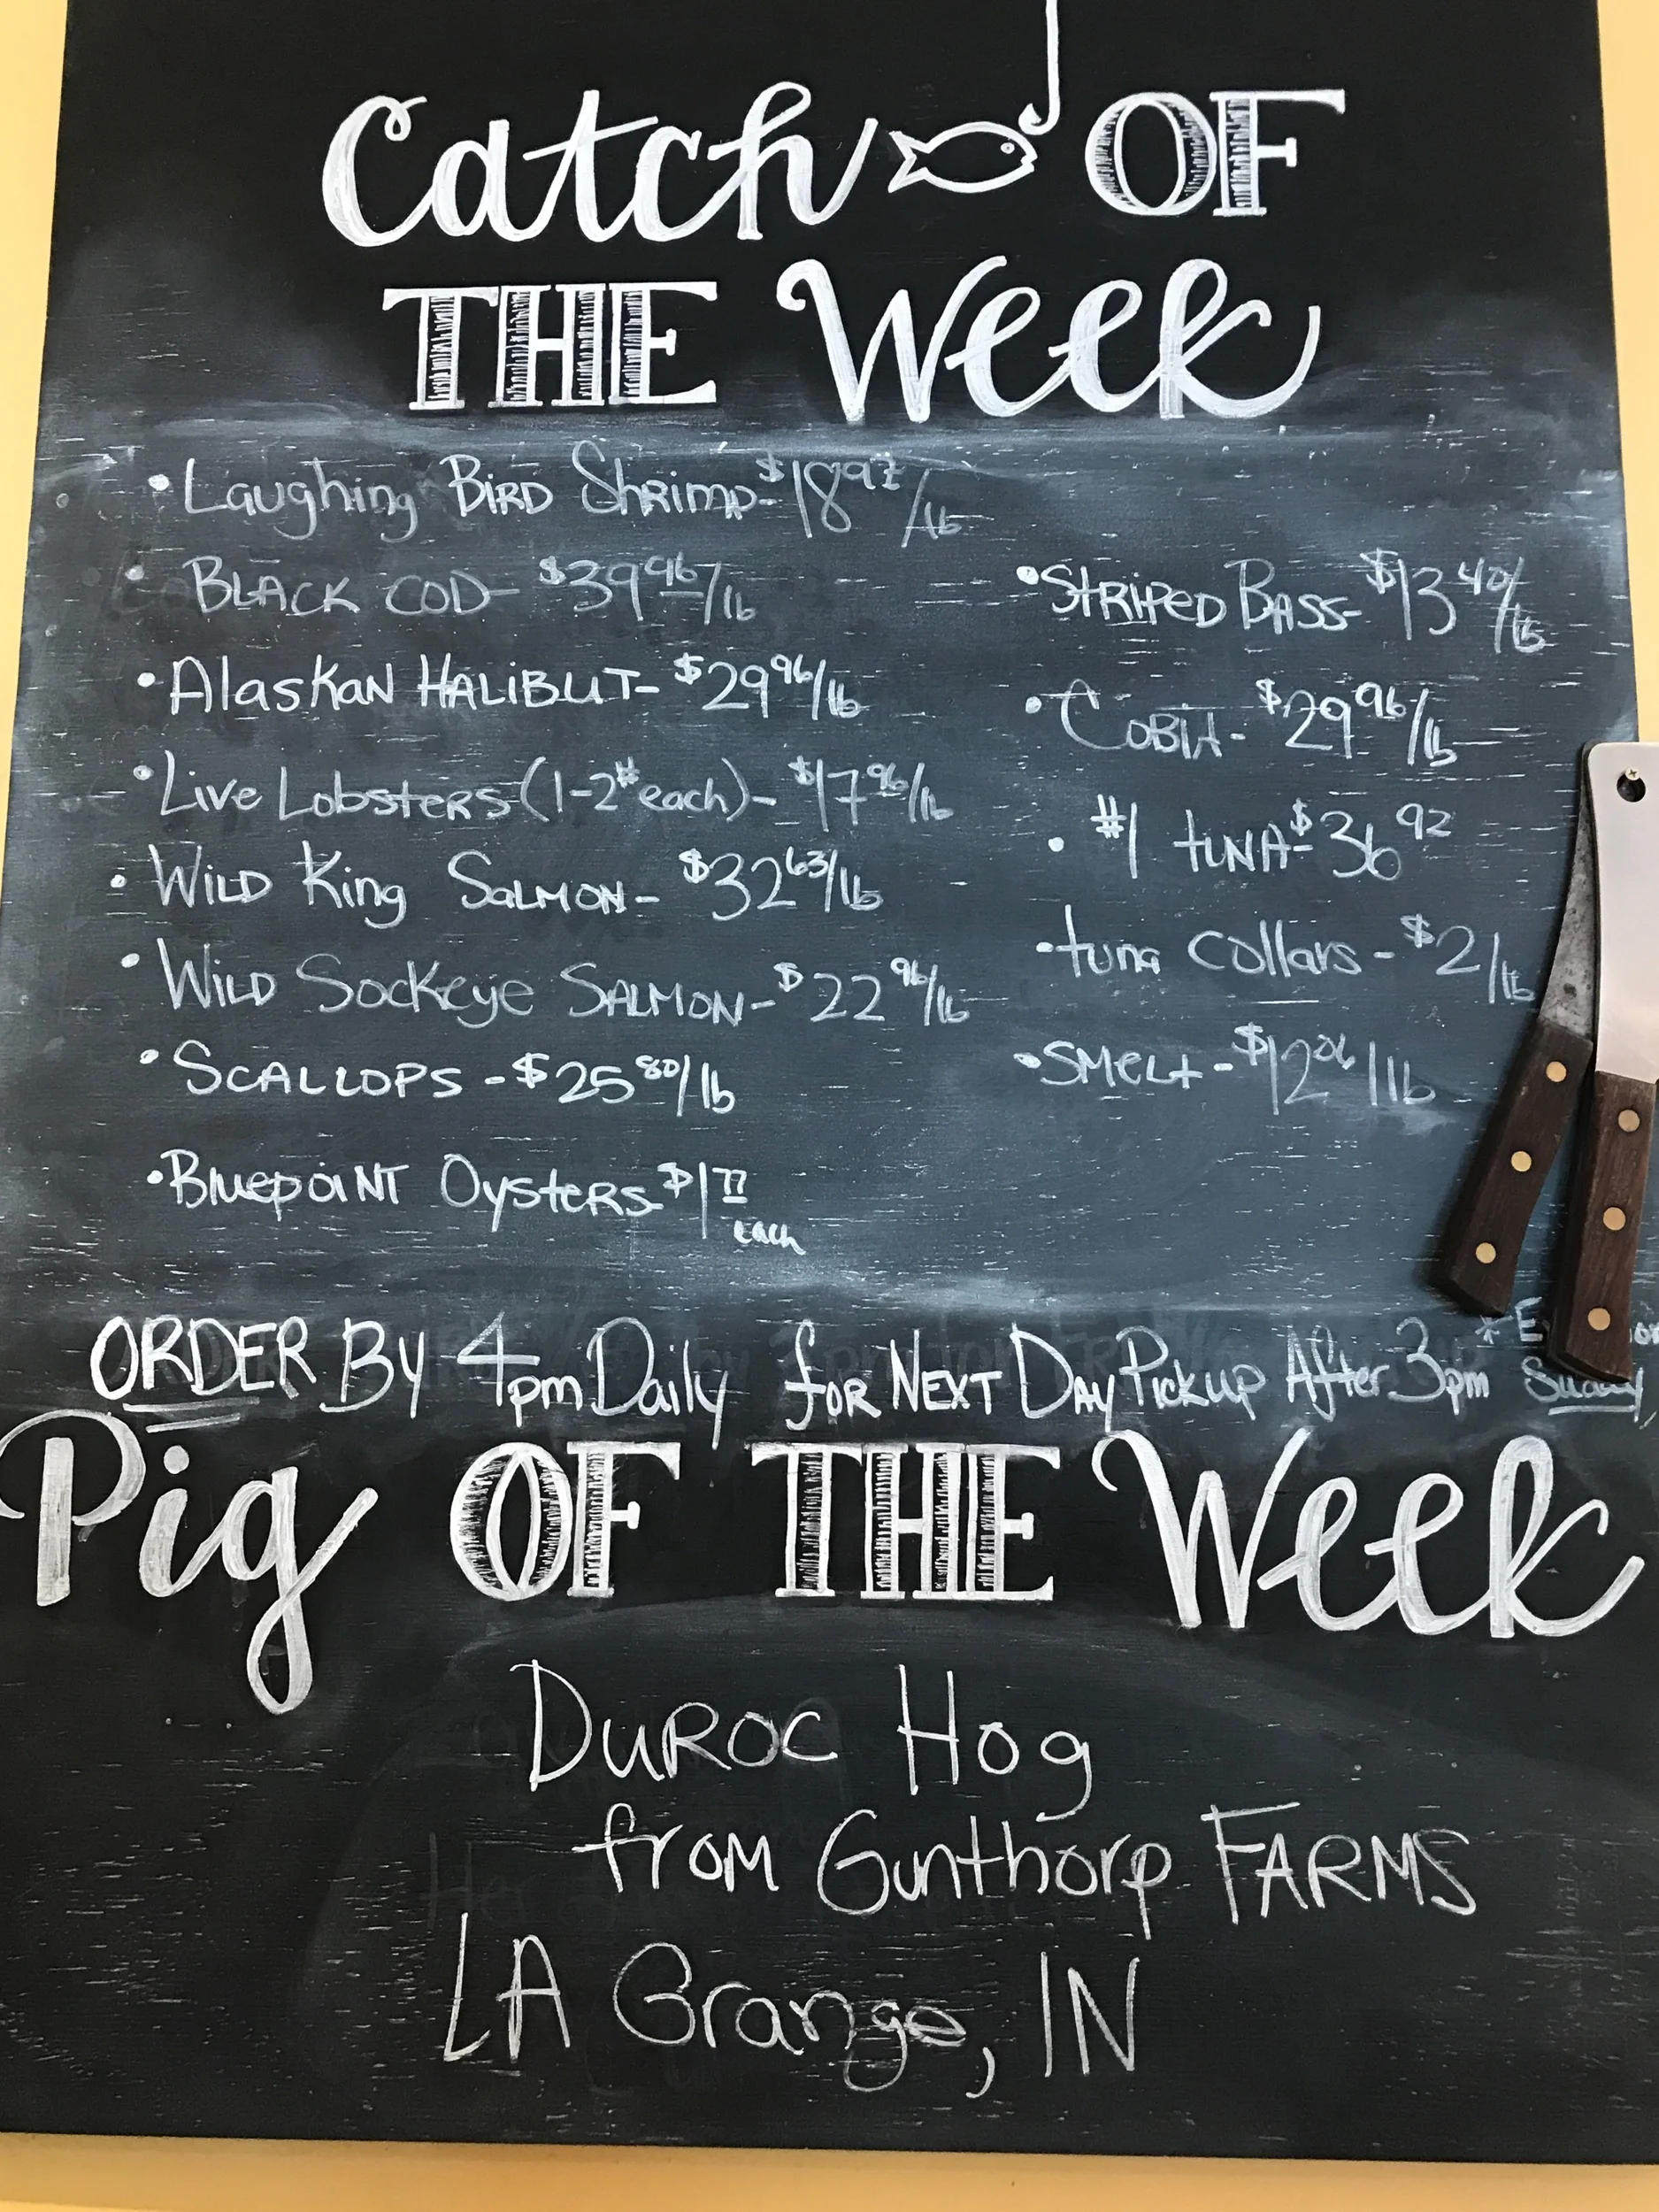 Catch OF
THE Week
• Laughing Bird Shrimp - $18 97/lb
• Black Cod - $39 96/lb
• Alaskan Halibut - $29 96/lb
• Live Lobsters (1-2# each) - $17 96/lb
• Wild King Salmon - $32 63/lb
• Wild Sockeye Salmon - $22 96/lb
• Scallops - $25 80/lb
• Bluepoint Oysters - $1 77
each
• Striped Bass - $13 40/lb
• Cobia - $29 96/lb
• #1 tuna - $36 92
• tuna collars - $2/lb
• Smelt - $12 06/lb
ORDER By 4pm Daily for Next Day Pickup After 3pm *
Pig OF THE Week
Duroc Hog
from Gunthorp Farms
LA Grange, IN